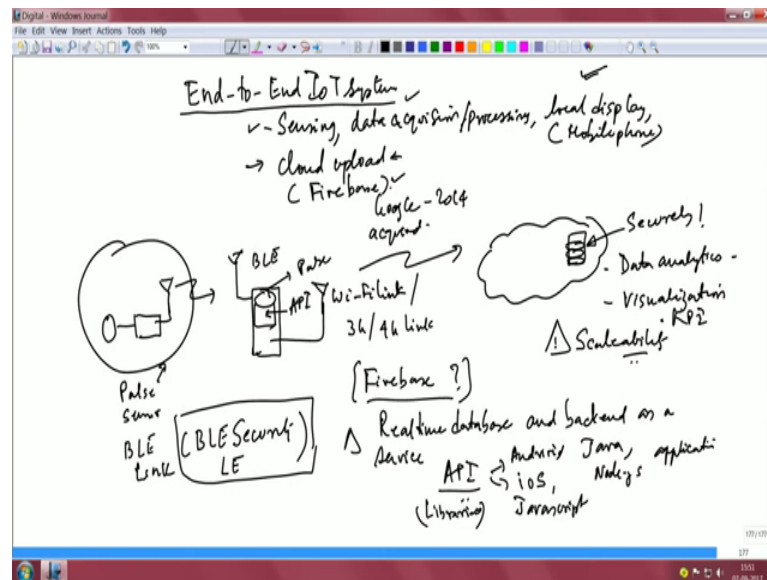 Digital - Windows Journal
File Edit View Insert Actions Tools Help
100%
B I
End-to-End IoT System
- Sensing, data acquisition/processing, local display,
(Mobilephone)
→ Cloud upload
(Firebase)
Google - 2014
acquired.
BLE
Pulse
API
Wi-Fi link/
3G/4G link
Securely!
- Data analytics -
- Visualization
. KPI
Scaleability
Pulse
Sensor
BLE
Link
(BLE Security)
LE
[Firebase ?]
Realtime database and backend as a
service
API → Android Java, application
→ iOS, Nodejs
(Libraries) Javascript
177/177
177
15:51